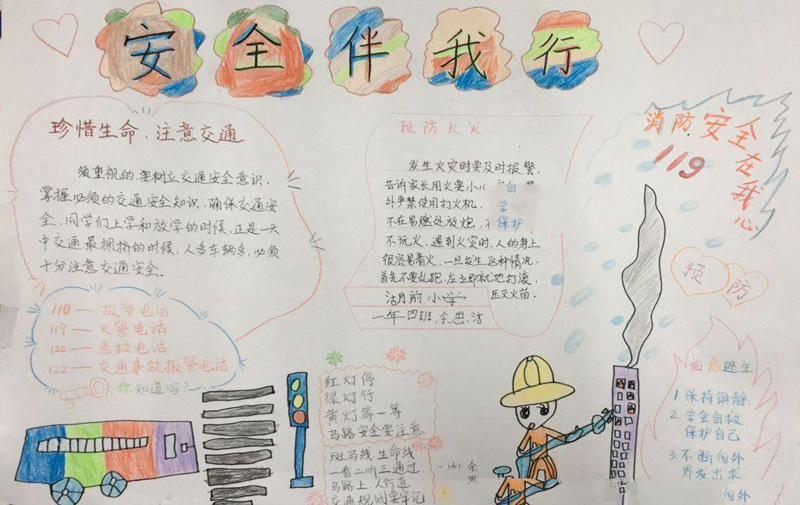 安全伴我行
珍惜生命、注意交通
须重视的,要树立交通安全意识,
掌握必须的交通安全知识,确保交通安
全,同学们上学和放学的时候,正是一天
中交通最拥挤的时候,人多车辆多,必须
十分注意交通安全.
110——报警电话
119——火警电话
120——急救电话
122——交通事故报警电话
你知道吗?
预防火灾
发生火灾时要及时报警,
告诉家长用火要小心
外严禁使用打火机.
不在易燃处放炮,
不玩火,遇到火灾时,人的身上
很容易着火,一旦发生这种情况,
首先不要乱跑,应立即就地打滚,
压灭火苗.
自
学
保护
湖前小学
一年四班,余思洁
消防安全在我心
119
预防
临危逃生
1.保持镇静
2.学会自救
保护自己
3.不断向外
界发出求
向外
红灯停
绿灯行
黄灯等一等
马路安全要注意
斑马线 生命线
一看二听三通过
马路上,人行道
交通规则要牢记
一(4)余